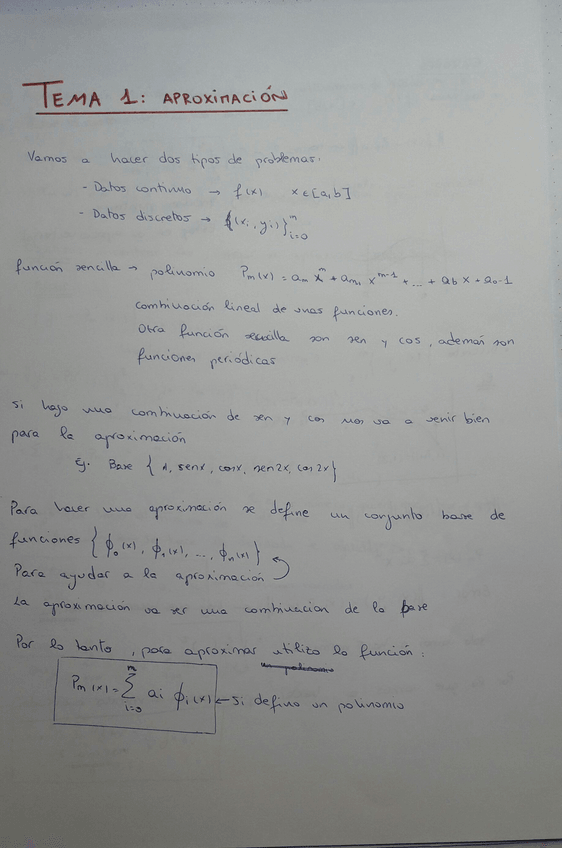 TEMA 1: APROXIMACIÓN
Vamos a hacer dos tipos de problemas.
- Datos continuo → f(x) x∈[a,b]
- Datos discretos → {(xi, yi)}ᵐi=0
función sencilla → polinomio Pm(x) = am xᵐ + am-1 xᵐ⁻¹ + ... + a1 x + a0·1
combinación lineal de unas funciones.
Otra función sencilla son sen y cos, ademas son
funciones periódicas
Si hago una combinación de sen y cos nos va a venir bien
para la aproximación
Ej. Base {1, senx, cosx, sen2x, cos2x}
Para hacer una aproximación se define un conjunto base de
funciones {ϕ0(x), ϕ1(x), ..., ϕn(x)}
Para ayudar a la aproximación
La aproximación va ser una combinacion de la base
Por lo tanto, para aproximar utilizo la función:
un polinomio
Pm(x) = ∑ᵐi=0 ai ϕi(x) ← si defino un polinomio